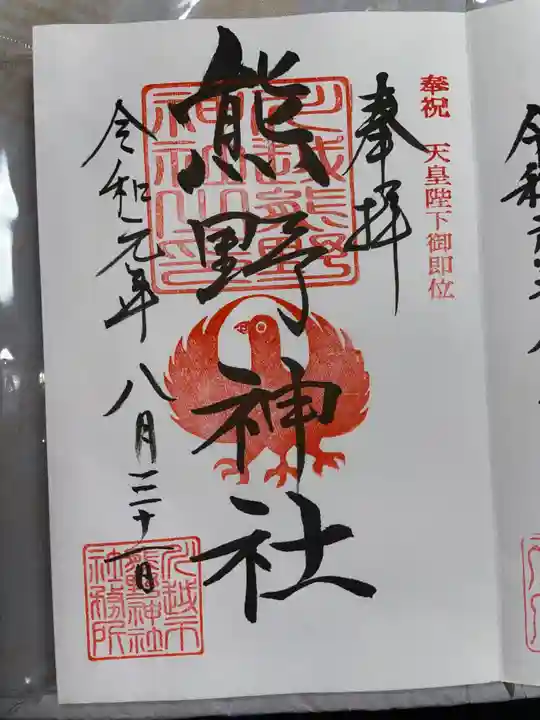 奉祝 天皇陛下御即位
奉拝
川越熊野
神社之印
熊野神社
令和元年八月三十一日
川越市
熊野神社
社務所